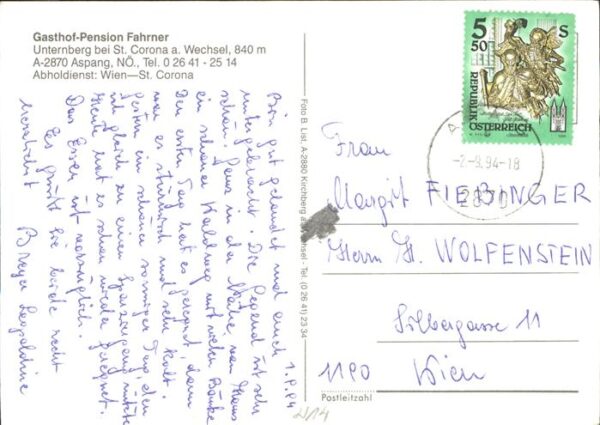 Gasthof-Pension Fahrner
Unternberg bei St. Corona a. Wechsel, 840 m
A-2870 Aspang, NÖ., Tel. 0 26 41 - 25 14
Abholdienst: Wien—St. Corona
1.9.94
Bin gut gelandet und auch
untergebracht. Die Gegend ist sehr
schön, ganz in der Nähe vom Haus
ein schöner Waldweg mit vielen Bänke
Den ersten Tag hat es geregnet, dann
war es stürmisch und sehr kalt.
Gestern ein schöner sonniger Tag, den
ich gleich zu einen Spaziergang nützte
Heute hat es schon wieder geregnet.
Das Essen ist vorzüglich.
Es grüßt Sie beide recht
herzlichst
Breyer Leopoldine
Foto B. List, A-2880 Kirchberg a. Wechsel - Tel. (0 26 41) 23 34
5 50 S
REPUBLIK
ÖSTERREICH
-2.-9.94-18
2870
Frau
Margit FIEBINGER
Herrn H. WOLFENSTEIN
Silbergasse 11
1190 Wien
Postleitzahl